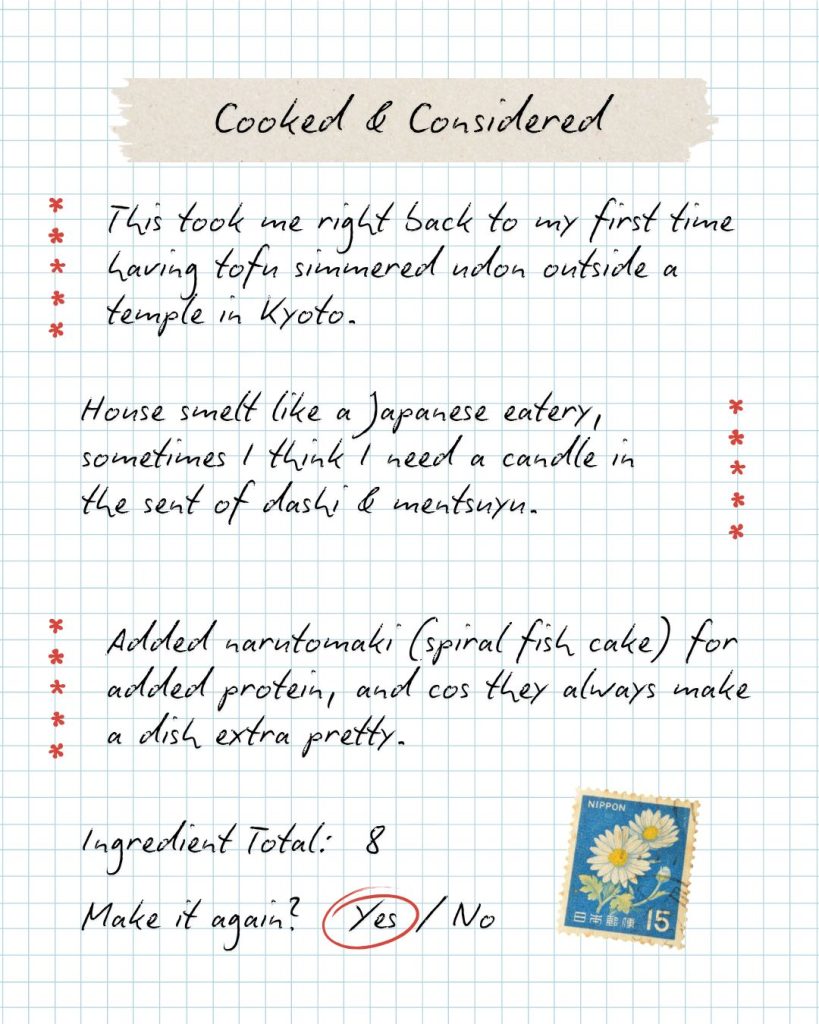 Cooked & Considered
This took me right back to my first time
having tofu simmered udon outside a
temple in Kyoto.
House smelt like a Japanese eatery,
sometimes I think I need a candle in
the sent of dashi & mentsuyu.
Added narutomaki (spiral fish cake) for
added protein, and cos they always make
a dish extra pretty.
Ingredient Total: 8
Make it again? Yes / No
NIPPON
日本郵便 15